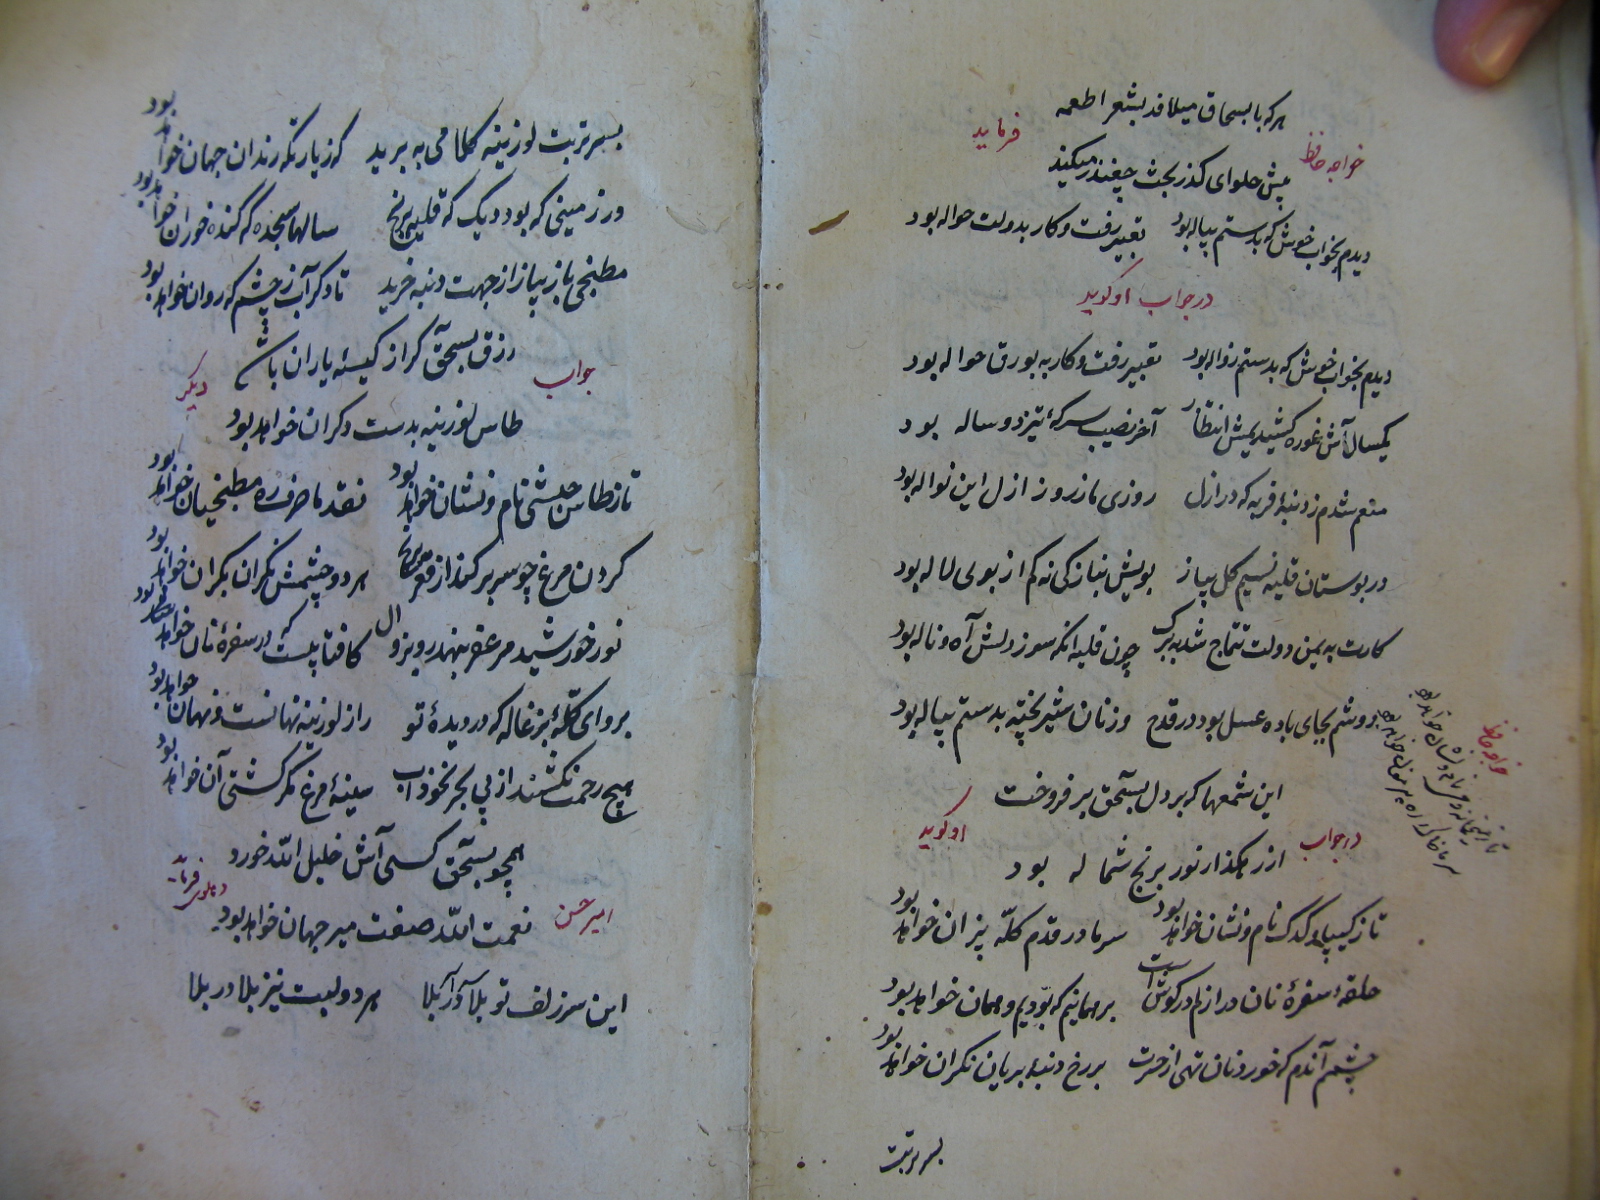 هر که با بسحاق میلافد بشعر اطعمه
خواجه حافظ فرماید
پیش حلوای گذر بحث چغندر میکند
دیدم بخواب خوش که بدستم پیاله بود تعبیر رفت و کار بدولت حواله بود
در جواب او گوید
دیدم بخواب خوش که بدستم نواله بود تعبیر رفت و کار به بورق حواله بود
یکسال آش غوره کشیدیمش انتظار آخر نصیب سرکهٔ تیز دو ساله بود
منعم شدم ز دنبهٔ فربه که در ازل روزی ما ز روز ازل این نواله بود
در بوستان قلیه نسیم گل پیاز بویش نیاز کی نه کم از بوی لاله بود
کارت به یمن دولت تتماج شد به برگ چون قلیه انکه سوز دلش آه و ناله بود
دوشم بجای باده عسل بود در قدح وز نان شیر پخته بدستم پیاله بود
خواجه حافظ
تا ز میخانه و می نام و نشان خواهد بود
سر ما خاک ره پیر مغان خواهد بود
این شمعها که بر دل بسحق بر فروخت
در جواب او گوید
از رهگذار نور برنج شما له بود
تا ز کیپا و کدک نام و نشان خواهد بود سر ما در قدم کله پزان خواهد بود
حلقهٔ سفرهٔ نان در ازلم در گوش است بر همانیم که بودیم و همان خواهد بود
چشمم آندم که خورد نان تهی از حسرت بر رخ دنبهٔ بریان نگران خواهد بود
بسر تربت
بسر تربت لوزینه کلامی به برید که زیارتگه رندان جهان خواهد بود
در زمینی که بود دیک که قلیه برنج سالها سجده گه گنده خوران خواهد بود
مطبخی باز پیاز از جهت دنبه خرید تا دگر آب ز چشم که روان خواهد بود
رزق بسحق گر از کیسهٔ یاران باشد
جواب دیگر
طاس لوزینه بدست دگران خواهد بود
تا ز طاس حبشی نام و نشان خواهد بود نقد ما صرف ره مطبخیان خواهد بود
گردن مرغ چو سر بر کند از قعر برنج هر دو چشمش نگران نگران خواهد بود
نور خورشید مزعفر بنهد رو بزوال کافتابیست که در سفرهٔ نان خواهد بود
برو ای کلهٔ بزغاله که در دیدهٔ تو راز لوزینه نهانست و نهان خواهد بود
هیچ رحمت نکشند از پی بحر نخوداب سینهٔ مرغ مگر کشتی آن خواهد بود
همچو بسحق کسی آش خلیل الله خورد
امیر حسن دهلوی فرماید
نعمت الله صفت میر جهان خواهد بود
این سر زلف تو بلا در بلا هر دو لبت نیز بلا در بلا